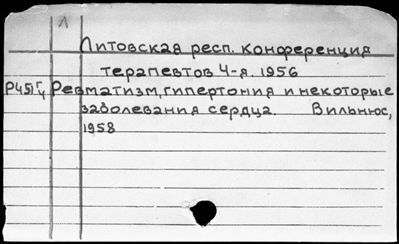 Л
Литовская респ. конференция
терапевтов 4-я. 1956
Ревматизм, гипертония и некоторые
заболевания сердца. Вильнюс,
1958